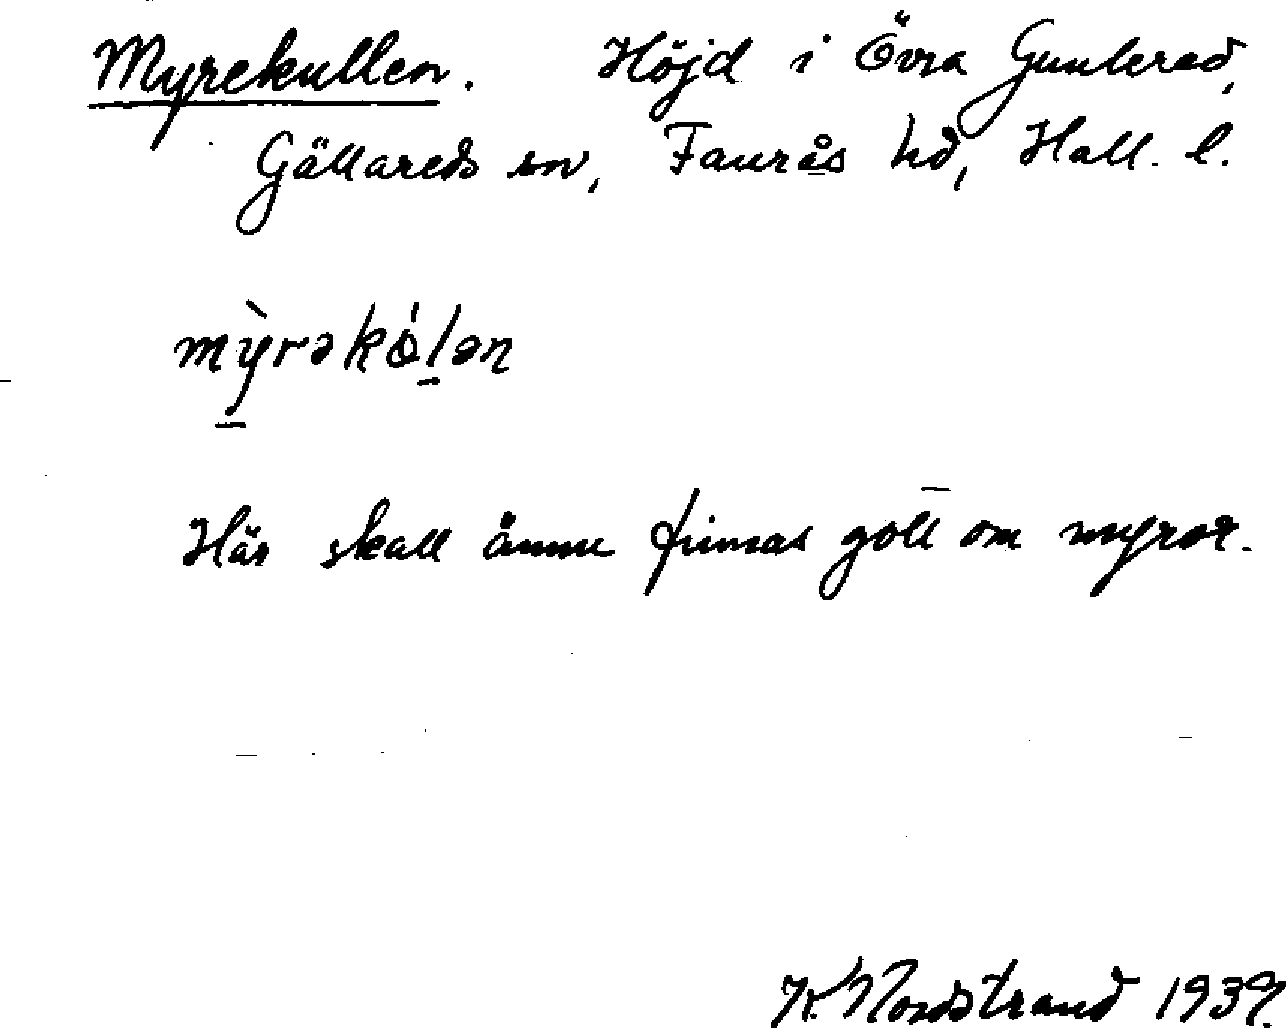 Myrekullen. Höjd i Övra Gunnered,
Gällareds sn, Faurås hd, Hall. l.
mỳrəkólən
Här skall ännu finnas gott om myror.
K. Nordstrand 1939.